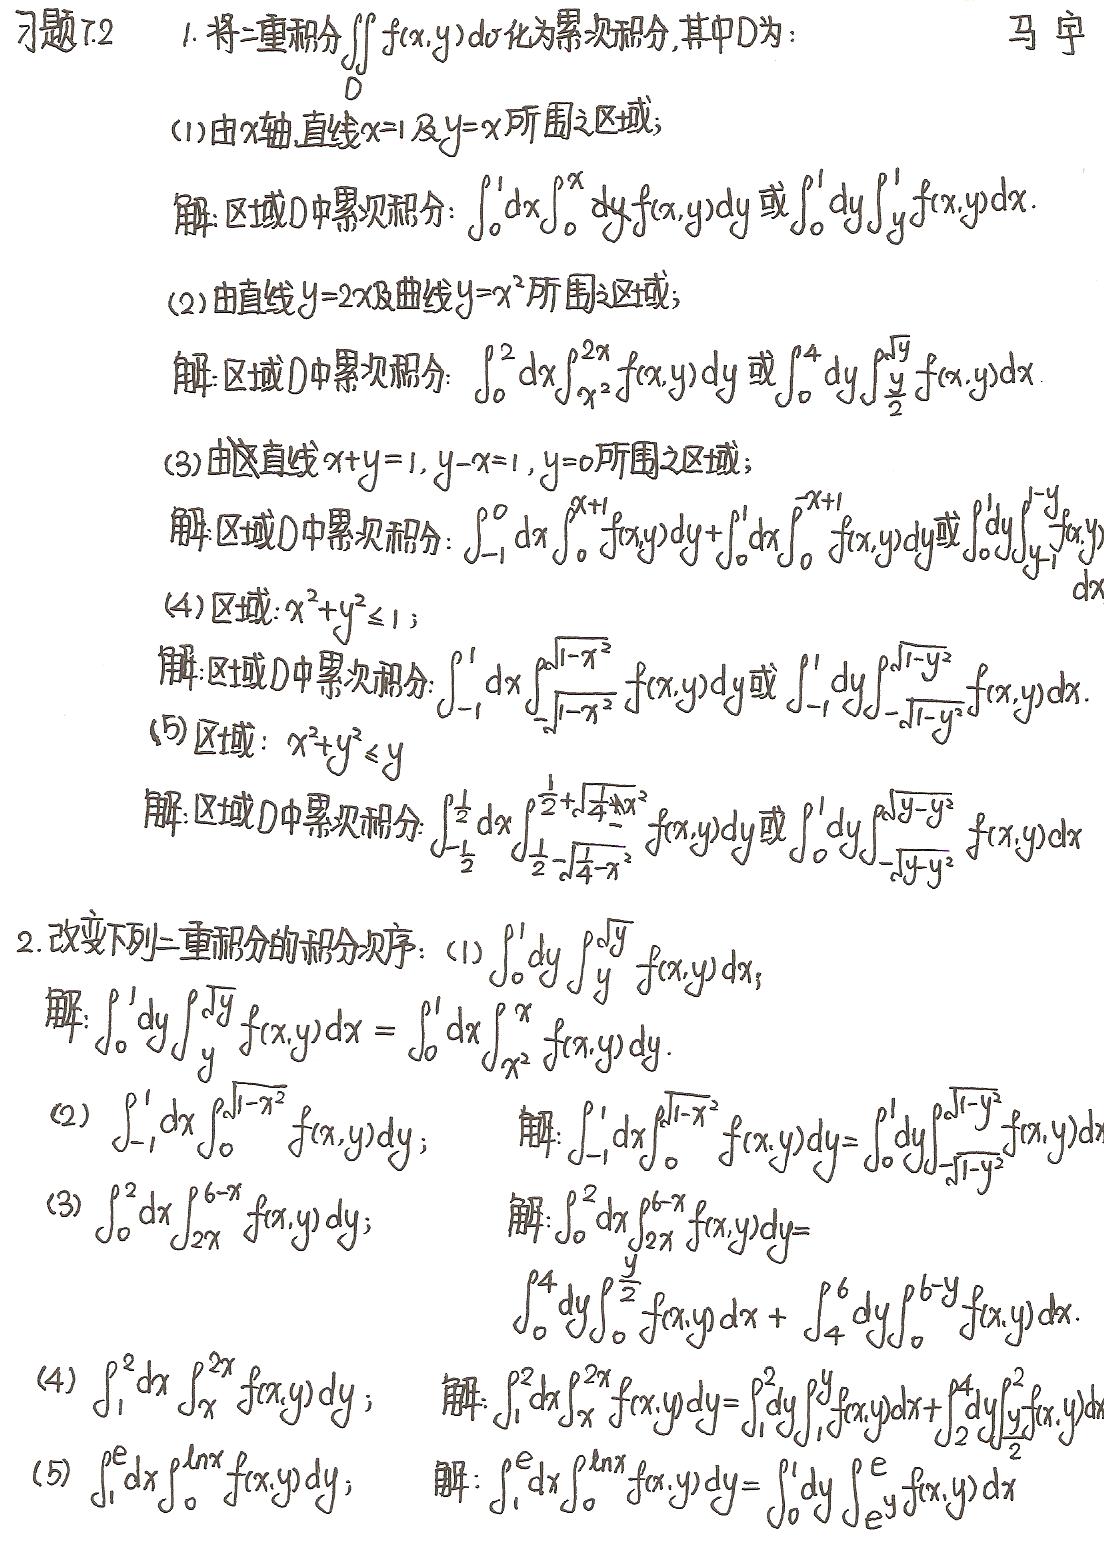 习题7.2 1. 将二重积分∬_D f(x,y)dσ化为累次积分,其中D为: 马宇
(1)由x轴,直线x=1及y=x所围之区域;
解:区域D中累次积分: ∫_0^1 dx∫_0^x dy f(x,y)dy 或 ∫_0^1 dy∫_y^1 f(x,y)dx.
(2)由直线y=2x及曲线y=x²所围之区域;
解:区域D中累次积分: ∫_0^2 dx∫_{x²}^{2x} f(x,y)dy 或 ∫_0^4 dy∫_{y/2}^{√y} f(x,y)dx.
(3)由直线x+y=1, y-x=1, y=0所围之区域;
解:区域D中累次积分: ∫_{-1}^0 dx∫_0^{x+1} f(x,y)dy+∫_0^1 dx∫_0^{-x+1} f(x,y)dy或∫_0^1 dy∫_{y-1}^{1-y} f(x,y)
dx
(4)区域: x²+y²≤1;
解:区域D中累次积分: ∫_{-1}^1 dx∫_{-√(1-x²)}^{√(1-x²)} f(x,y)dy或 ∫_{-1}^1 dy∫_{-√(1-y²)}^{√(1-y²)} f(x,y)dx.
(5)区域: x²+y²≤y
解:区域D中累次积分: ∫_{-1/2}^{1/2} dx∫_{1/2-√(1/4-x²)}^{1/2+√(1/4-x²)} f(x,y)dy或 ∫_0^1 dy∫_{-√(y-y²)}^{√(y-y²)} f(x,y)dx
2. 改变下列二重积分的积分次序: (1) ∫_0^1 dy∫_y^{√y} f(x,y)dx;
解: ∫_0^1 dy∫_y^{√y} f(x,y)dx = ∫_0^1 dx∫_{x²}^x f(x,y)dy.
(2) ∫_{-1}^1 dx∫_0^{√(1-x²)} f(x,y)dy; 解: ∫_{-1}^1 dx∫_0^{√(1-x²)} f(x,y)dy=∫_0^1 dy∫_{-√(1-y²)}^{√(1-y²)} f(x,y)dx
(3) ∫_0^2 dx∫_{2x}^{6-x} f(x,y)dy; 解: ∫_0^2 dx∫_{2x}^{6-x} f(x,y)dy=
∫_0^4 dy∫_0^{y/2} f(x,y)dx + ∫_4^6 dy∫_0^{6-y} f(x,y)dx.
(4) ∫_1^2 dx∫_x^{2x} f(x,y)dy; 解: ∫_1^2 dx∫_x^{2x} f(x,y)dy=∫_1^2 dy∫_1^y f(x,y)dx+∫_2^4 dy∫_{y/2}^2 f(x,y)dx
(5) ∫_1^e dx∫_0^{lnx} f(x,y)dy; 解: ∫_1^e dx∫_0^{lnx} f(x,y)dy=∫_0^1 dy∫_{e^y}^e f(x,y)dx